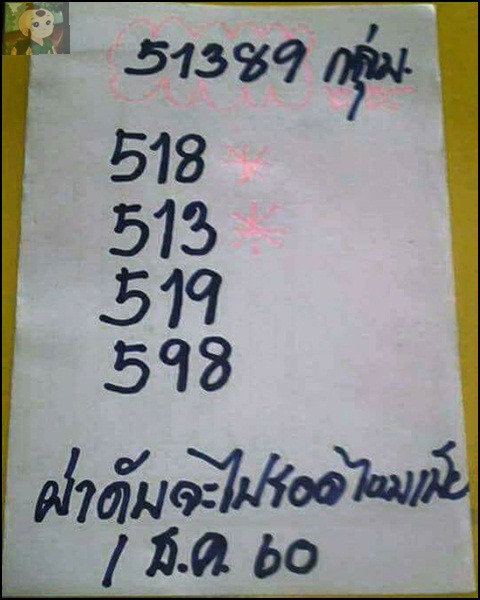 51389 กลุ่ม.
518
513
519
598
ฝ่าดันจะไปรอดไหมเนี่ย
1 ธ.ค. 60